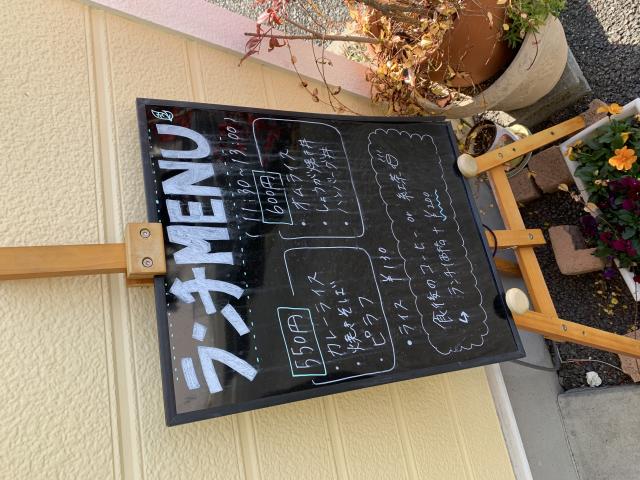 ランチMENU
(11:30~13:00)
550円
・カレーライス
・焼きそば
・ピラフ
600円
・オムライス
・しょうが焼き丼
・ハンバーグ丼
・ライス ¥130
食後のコーヒー or 紅茶
↳ ランチ価格 + ¥200